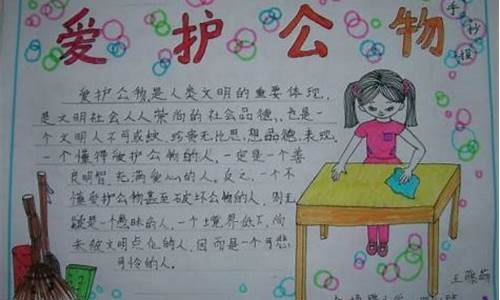 爱护公物
手抄报
爱护公物,是人类文明的重要体现,
是文明社会人人崇尚的社会品德,也是一
个文明人不可或缺,珍贵无比思想品德,表现,
一个懂得爱护公物的人,一定是一个善
良明智,充满爱心的人。反之,一个不
懂爱护公物甚至破坏公物的人,则无
疑是一个愚昧的人,一个境界低下,尚
未被文明点化的人,因而是一个可悲
可怜的人。